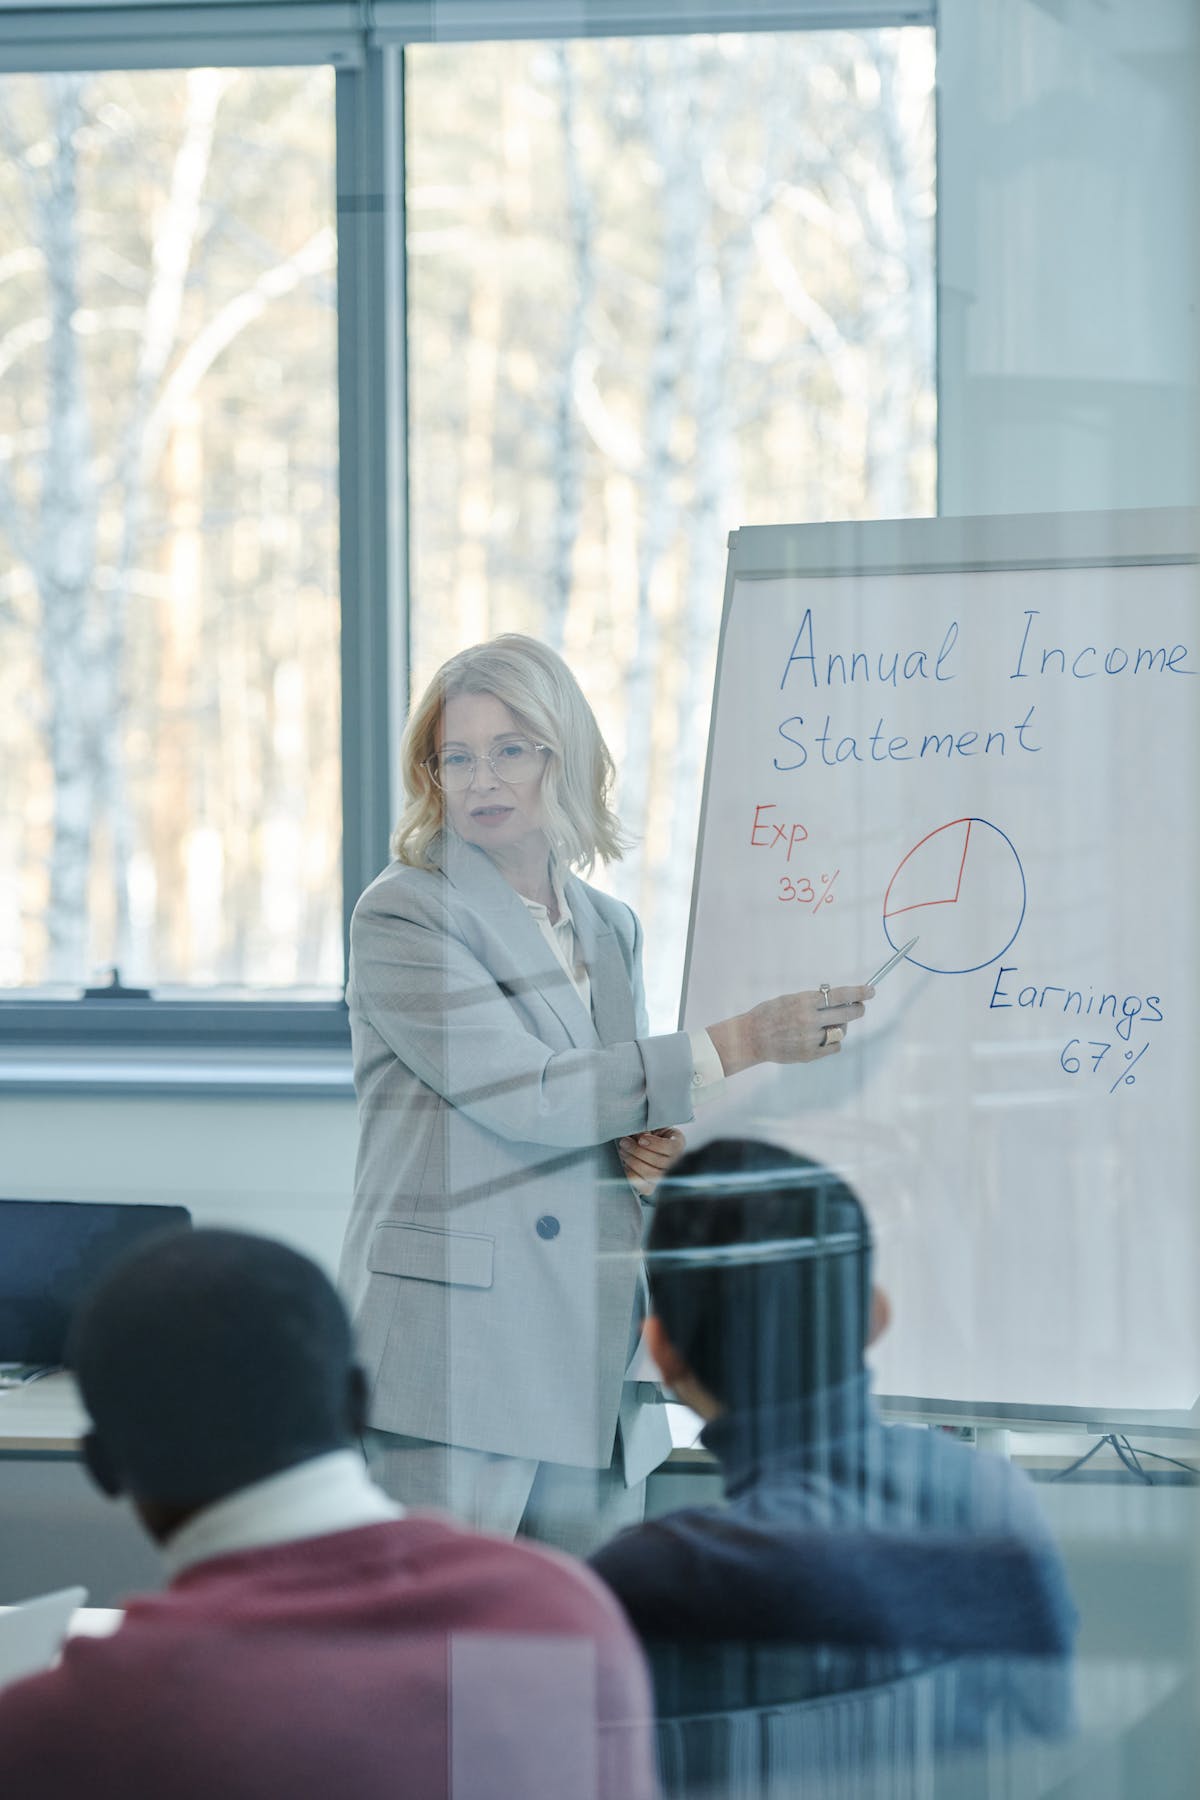 Annual Income
Statement
Exp
33%
Earnings
67%